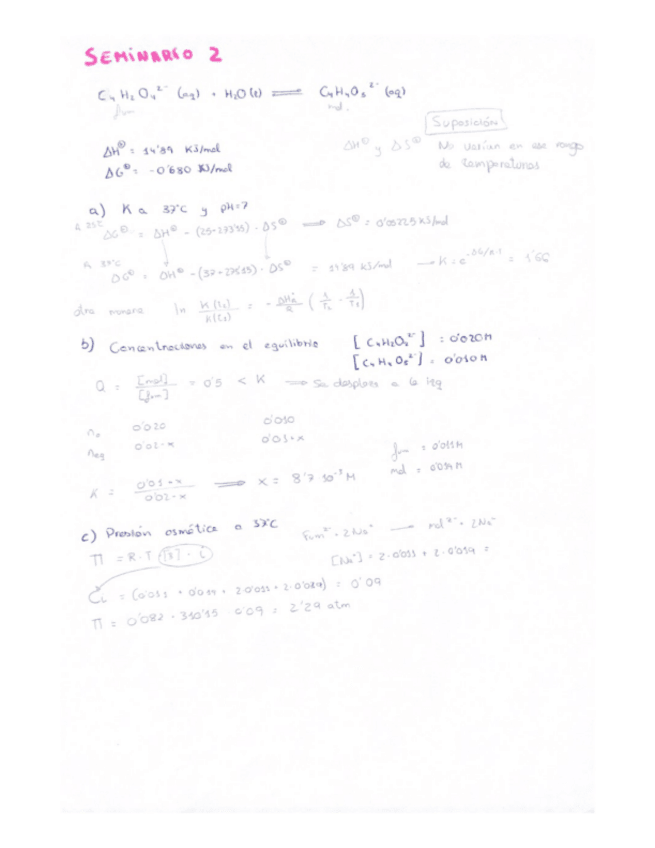 SEMINARIO 2
C₄H₂O₄²⁻ (aq) + H₂O (l) ⇌ C₄H₄O₅²⁻ (aq)
fum mal.
ΔH° = 14'89 KJ/mol
ΔG° = -0'680 KJ/mol
Suposición
ΔH° y ΔS° No varían en ese rango de temperaturas
a) K a 37°C y pH=7
a 25°C ΔG° = ΔH° - (25+273'15) · ΔS° ⟹ ΔS° = 0'05225 KJ/mol
a 37°C ΔG° = ΔH° - (37+273'15) · ΔS° = KJ/mol → K = e^(-ΔG/R·T) = 1'66
otra manera ln K(T₂)/K(T₁) = - ΔH°/R (1/T₂ - 1/T₁)
b) Concentraciones en el equilibrio [C₄H₂O₄²⁻] = 0'020M
[C₄H₄O₅²⁻] = 0'010M
Q = [mal]/[fum] = 0'5 < K ⟹ Se desplaza a la izq
n₀ 0'020 0'010
neq 0'02-x 0'01+x
fum = 0'011M
mal = 0'019M
K = 0'01+x / 0'02-x ⟹ x = 8'7 · 10⁻³ M
c) Presión osmótica a 37°C
Fum²⁻ + 2Na⁺ → mal²⁻ + 2Na⁺
Π = R·T·[B]·i
[Na⁺] = 2·0'011 + 2·0'019 =
= (0'011 + 0'019 + 2·0'011 + 2·0'019) = 0'09
Π = 0'082 · 310'15 · 0'09 = 2'29 atm